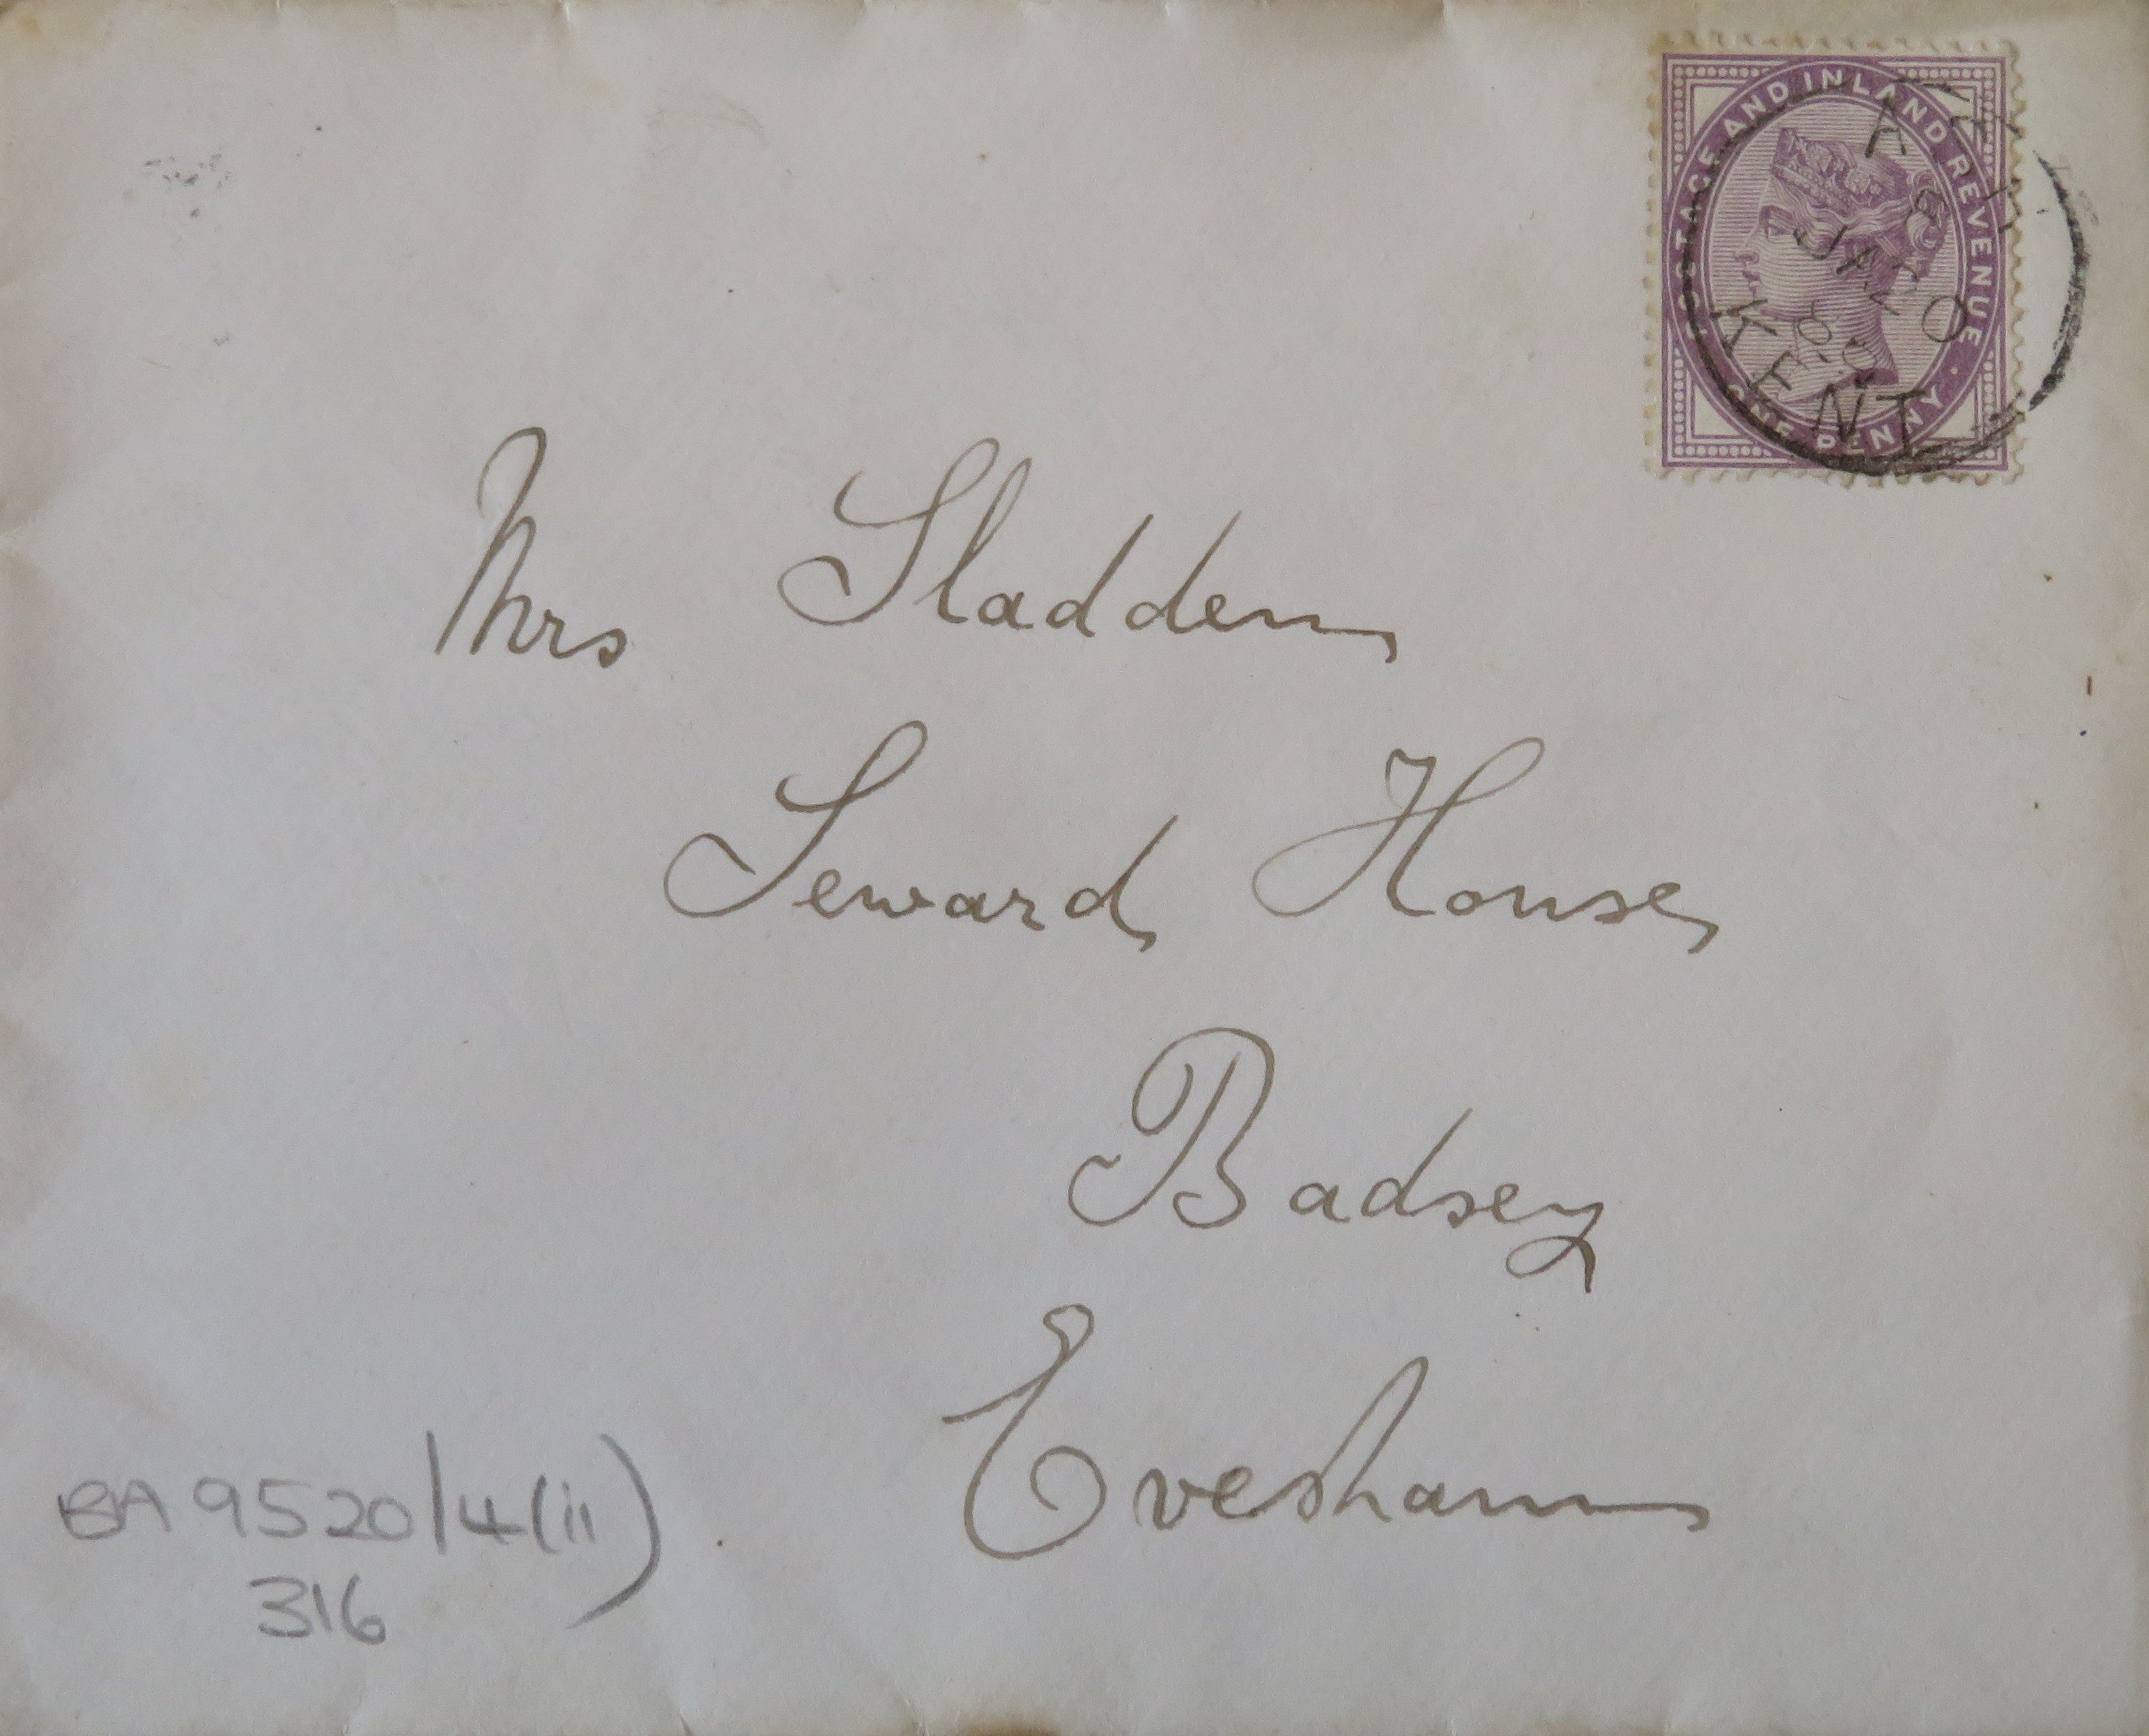 POSTAGE AND INLAND REVENUE
ONE PENNY
KENT
Mrs Sladden
Seward House
Badsey
Evesham
BA 9520/4(ii)
316